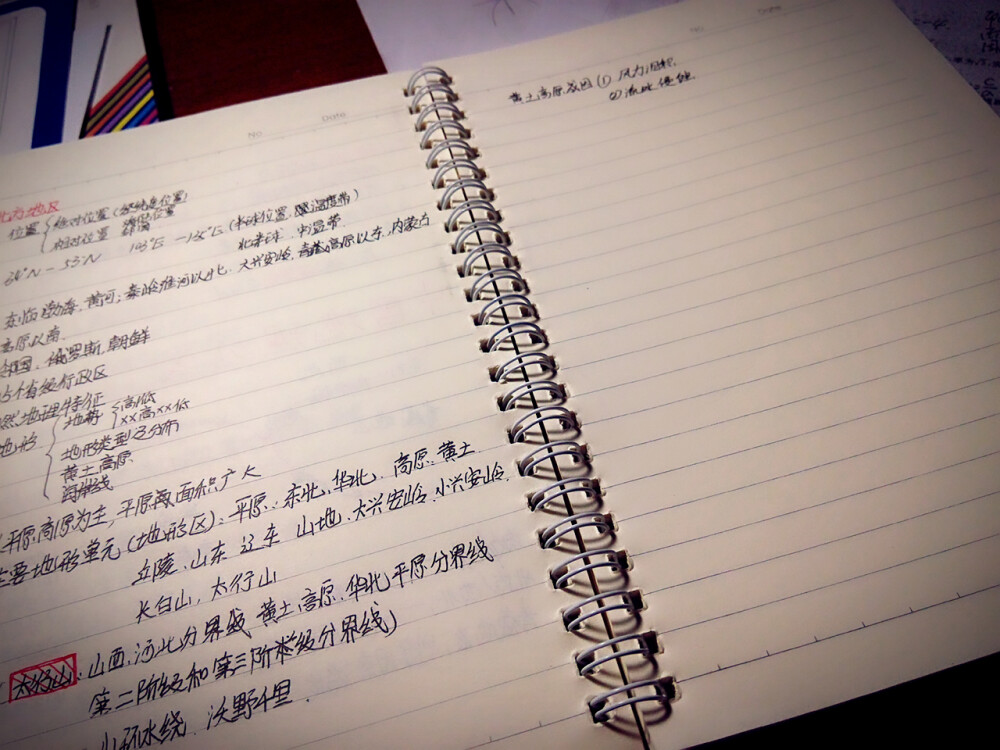 No.
Date
北方地区
位置 绝对位置 (经纬度位置)
相对位置 海陆位置
34°N - 53°N 103°E - 135°E (半球位置、温度带)
北半球 中温带
东临渤海、黄河; 秦岭淮河以北、大兴安岭、青藏高原以东、内蒙古
高原以南
俄罗斯、朝鲜
省级行政区
然地理特征
地形 地势 高低
xx高xx低
地形类型及分布
黄土高原
海岸线
平原、高原为主, 平原面积广大
主要地形单元 (地形区): 平原: 东北、华北、高原: 黄土
丘陵、山东 辽东 山地: 大兴安岭、小兴安岭、
长白山, 太行山
太行山: 山西、河北分界线 黄土高原、华北平原分界线
第二阶级和第三阶梯级分界线)
山环水绕、沃野千里.
No.
Date
黄土高原成因 ① 风力沉积.
② 流水侵蚀.